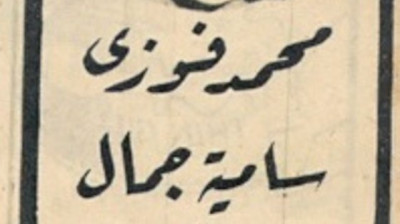 محمد فوزى
سامية جمال